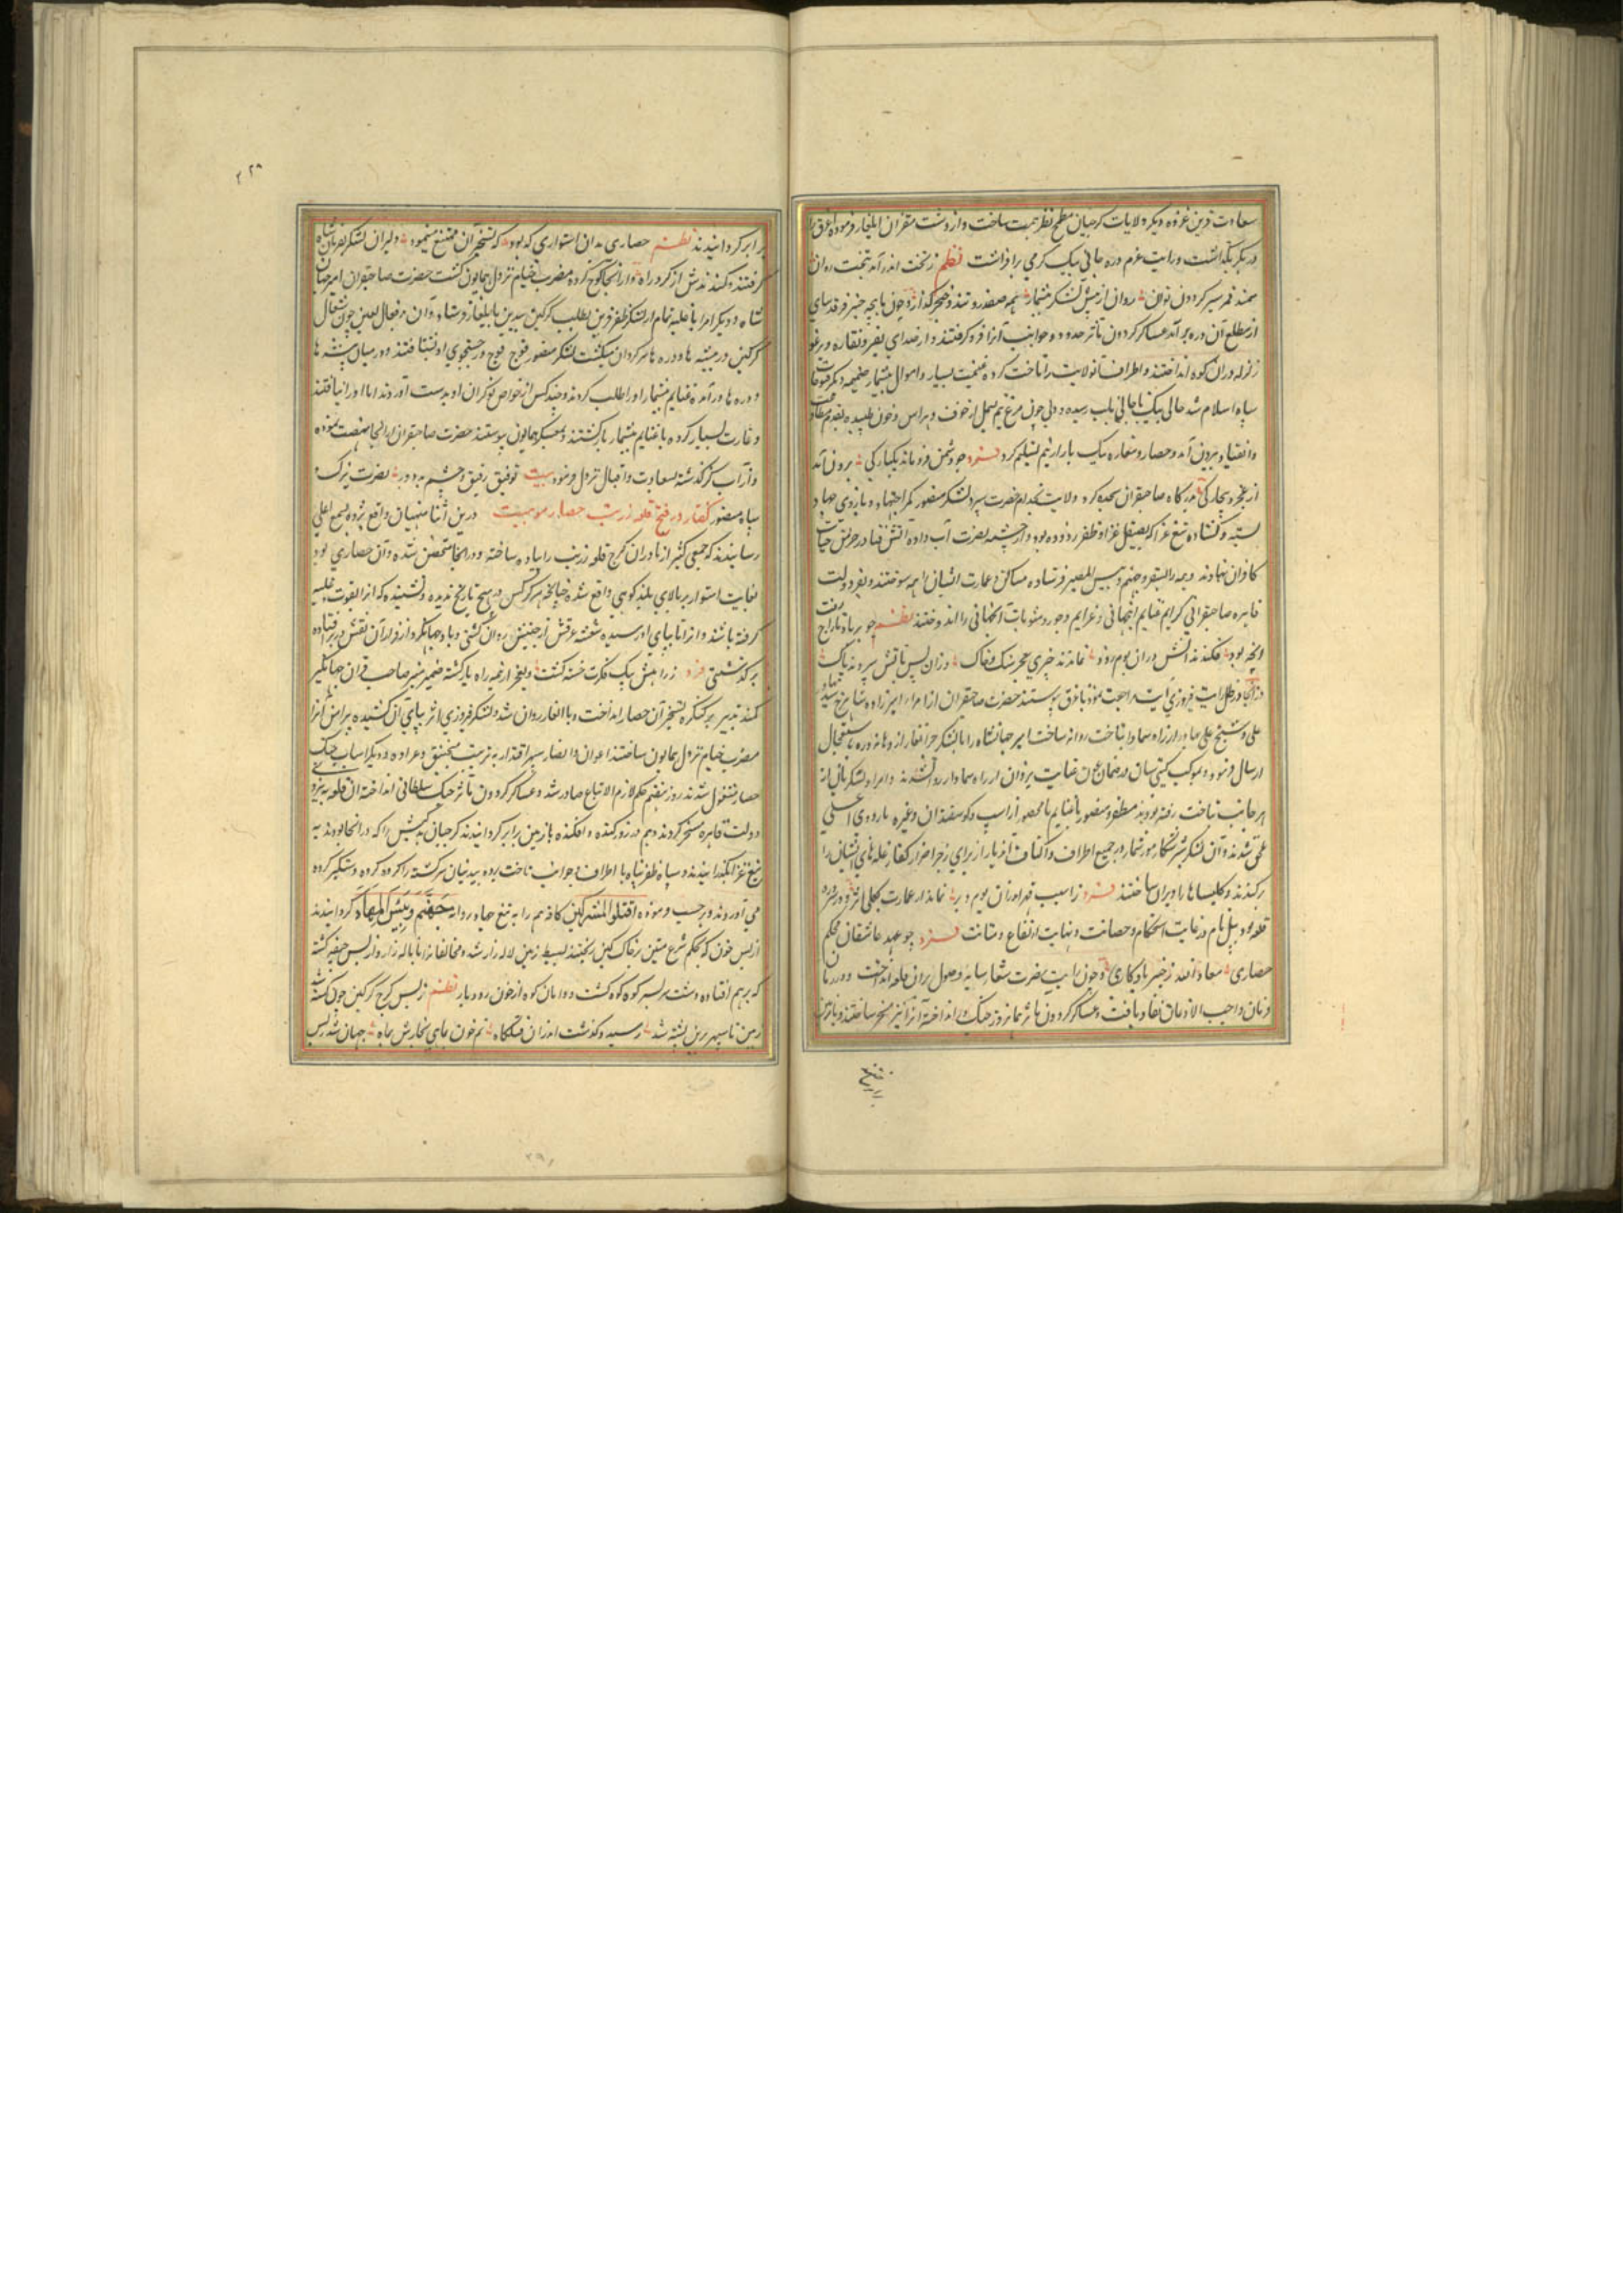 سعادت قرین غزوه دیگر ولایات گرجیان مطمح نظر همت ساخت و از دشت مقران ایلغار فرموده اغرق را
در یکر بگذاشت و رایت عزم دره جانی بیک گرمی برافراشت نظم ز تخت اندر آمد به تخت روان
سمند قمر سیر گردون توان روان از پیش لشکر بیشمار همه صفدر و تند و خنجر گذار و چون
از مطلع آن دره برآمد عساکر گردون مآثر حدود و جوانب آنرا فرو گرفتند و از صدای نفیر و نقاره و غریو
زلزله در آن کوه انداختند و اطراف آن ولایت را تاخت کرده غنیمت بسیار و اموال بیشمار ضمیمه دیگر فتوحات
سپاه اسلام شد جانی بیک با جانی بلب رسیده و دلی چون مرغ نیم بسمل از خوف و هراس در خون طپیده بقدم
و انقیاد بیرون آمد و حصار و مغاره یک بار از بیم تسلیم کرد فرد چو دشمن فرو ماند یکبارگی برون آمد
از عجز و بیچارگی بدرگاه صاحبقران سجده کرد ولایت بخدام حضرت سپرد لشکر منصور کمر اجتهاد و بازوی جهاد
بسته و گشاده تیغ غزا که بصیقل غزا و ظفر زدوده بود و از چشمه نصرت آب داده آتش فنا در خرمن حیات
کافران نهادند و همه را بسقر و جهنم و بئس المصیر فرستاده مساکن و عمارت ایشان را همه سوختند و بفر دولت
قاهره صاحبقرانی کرایم غنایم اینجهانی و عزایم و جور و مثوبات آنجهانی را اندوختند نظم چو بر باد تاراج رفت
آنچه بود فکندند آتش در آن بوم زود نماندند چیزی بجز سنگ و خاک وزان پس
ظل رایت فیروزی آیت مراجعت نموده باغرق پیوستند حضرت صاحبقران از امرا امیرزاده شاهرخ سید
علی و شیخ علی بهادر از راه سماوا بتاخت روانه ساخت امیر جهانشاه را با لشکر جرانغار از وهانه دره باستعجال
ارسال فرمود و موکب گیتی ستان در ضمان عون عنایت یزدان از راه سماوا روان شدند و امرا و لشکریانی که
هر جانب بتاخت رفته بودند مظفر و منصور با غنایم نامحصور از اسپ و گوسفندان و غیره باردوی اعلی
ملحق شدند و آن لشکر شیر شکار مور شمار در جمیع اطراف و اکناف آن دیار از برای زجر و اضرار کفار غله های ایشان را
برکندند و کلیساها را ویران ساختند فرد ز آسیب قهر اندر آن بوم و بر نماند از عمارت بکلی اثر
قلعه بود بیل نام در غایت استحکام و حصانت و نهایت ارتفاع و متانت فرد چو عهد عاشقان محکم
حصاری معاذ الله و چون رایت نصرت شعار سایه وصول بر آن قلعه انداخت و در زمان
فرمان واجب الاذعان نفاذ یافت و عساکر گردون مآثر همانروز جنگ انداخته آنرا نیز مسخر ساختند و با زمین
برابر گردانیدند نظم حصاری بدان استواری که بود که تسخیر آن ممتنع مینمود دلیران لشکر بفرمان شاه
گرفتند و کندندش از گرد راه و از آنجا کوچ کرده مضرب خیام نزول همایون گشت حضرت صاحبقران امیر جهان
شاه و دیگر امرا با غلبه تمام از لشکر ظفر قرین بطلب گرگین بیدین بایلغار فرستاد و آن مخذول لعین چون شغال
گرگین در بیشه ها و دره ها سرگردان میگشت لشکر منصور فوج فوج در جستجوی او بشتافتند و در میان بیشه ها
و دره ها درآمده غنایم بیشمار او را طلب کردند و چند کس از خواص نوکران او بدست آوردند اما او را نیافتند
و غارت بسیار کرده با غنایم بیشمار بازگشتند و بمعسکر همایون پیوستند حضرت صاحبقران از آنجا نهضت نموده
و از آب کر گذشته بسعادت و اقبال نزول فرمود بیت توفیق رفیق و چشم بد دور نصرت یزک
سپاه منصور گفتار در فتح قلعه زریت حصار موهبت درین اثنا منهیان واقع پژوه بسمع اعلی
رسانیدند که جمعی کثیر از نادوران گرج قلعه زریت را پناه ساخته و در آنجا متحصن شده و آن حصاری بود
بغایت استوار بر بالای بلند کوهی واقع شده چنانچه هرگز کس در هیچ تاریخ ندیده و نشنیده که آنرا بقوت غلبه
گرفته باشند و از آنجا بپای او رسیده
برگذشتی فرد ز راهش پیک فکرت خسته گشت و بعجز از نیمه راه بازگشته ضمیر منیر صاحب قران جهانگیر
کمند تدبیر بر کنگره تسخیر آن حصار انداخت و بایلغار روان شد و لشکر فیروزی اثر بپای آن کشیده پیرامن آنرا
مضرب خیام نزول همایون ساختند اعوان و انصار سپهر اقتدار به ترتیب منجنیق و عراده و دیگر اسباب جنگ
حصار مشغول شدند روز هفتم حکم لازم الاتباع صادر شد و عساکر گردون مآثر جنگ سلطانی انداخته آن قلعه
دولت قاهره مسخر کردند و هم در روز کنده و افکنده با زمین برابر گردانیدند گرجیان بدکیش را که در آنجا بودند به
تیغ غزا بگذرانیدند و سپاه ظفر پناه باطراف و جوانب تاخت برده بیدینان سرگشته را گروه گروه دستگیر کرده
می آوردند و بر حسب فرموده اقتلوا المشرکین کافه هم را به تیغ جهاد روانه جهنم وبئس المهاد گردانیدند
از بس خون که بحکم شرع متین بر خاک کین ریختند بسیط زمین لاله زار شد و مخالفان را ناله زار و از بس جیفه کشته
که بر هم افتاده دشت سراسر کوه کوه گشت و دامان کوه از خون رودبار نظم ز بس گرج گرگین چون کشته شد
زمین تا سپهر برین پشته شد رسید و گذشت اندران نم خون بماهی بخارش بماه جهان شد